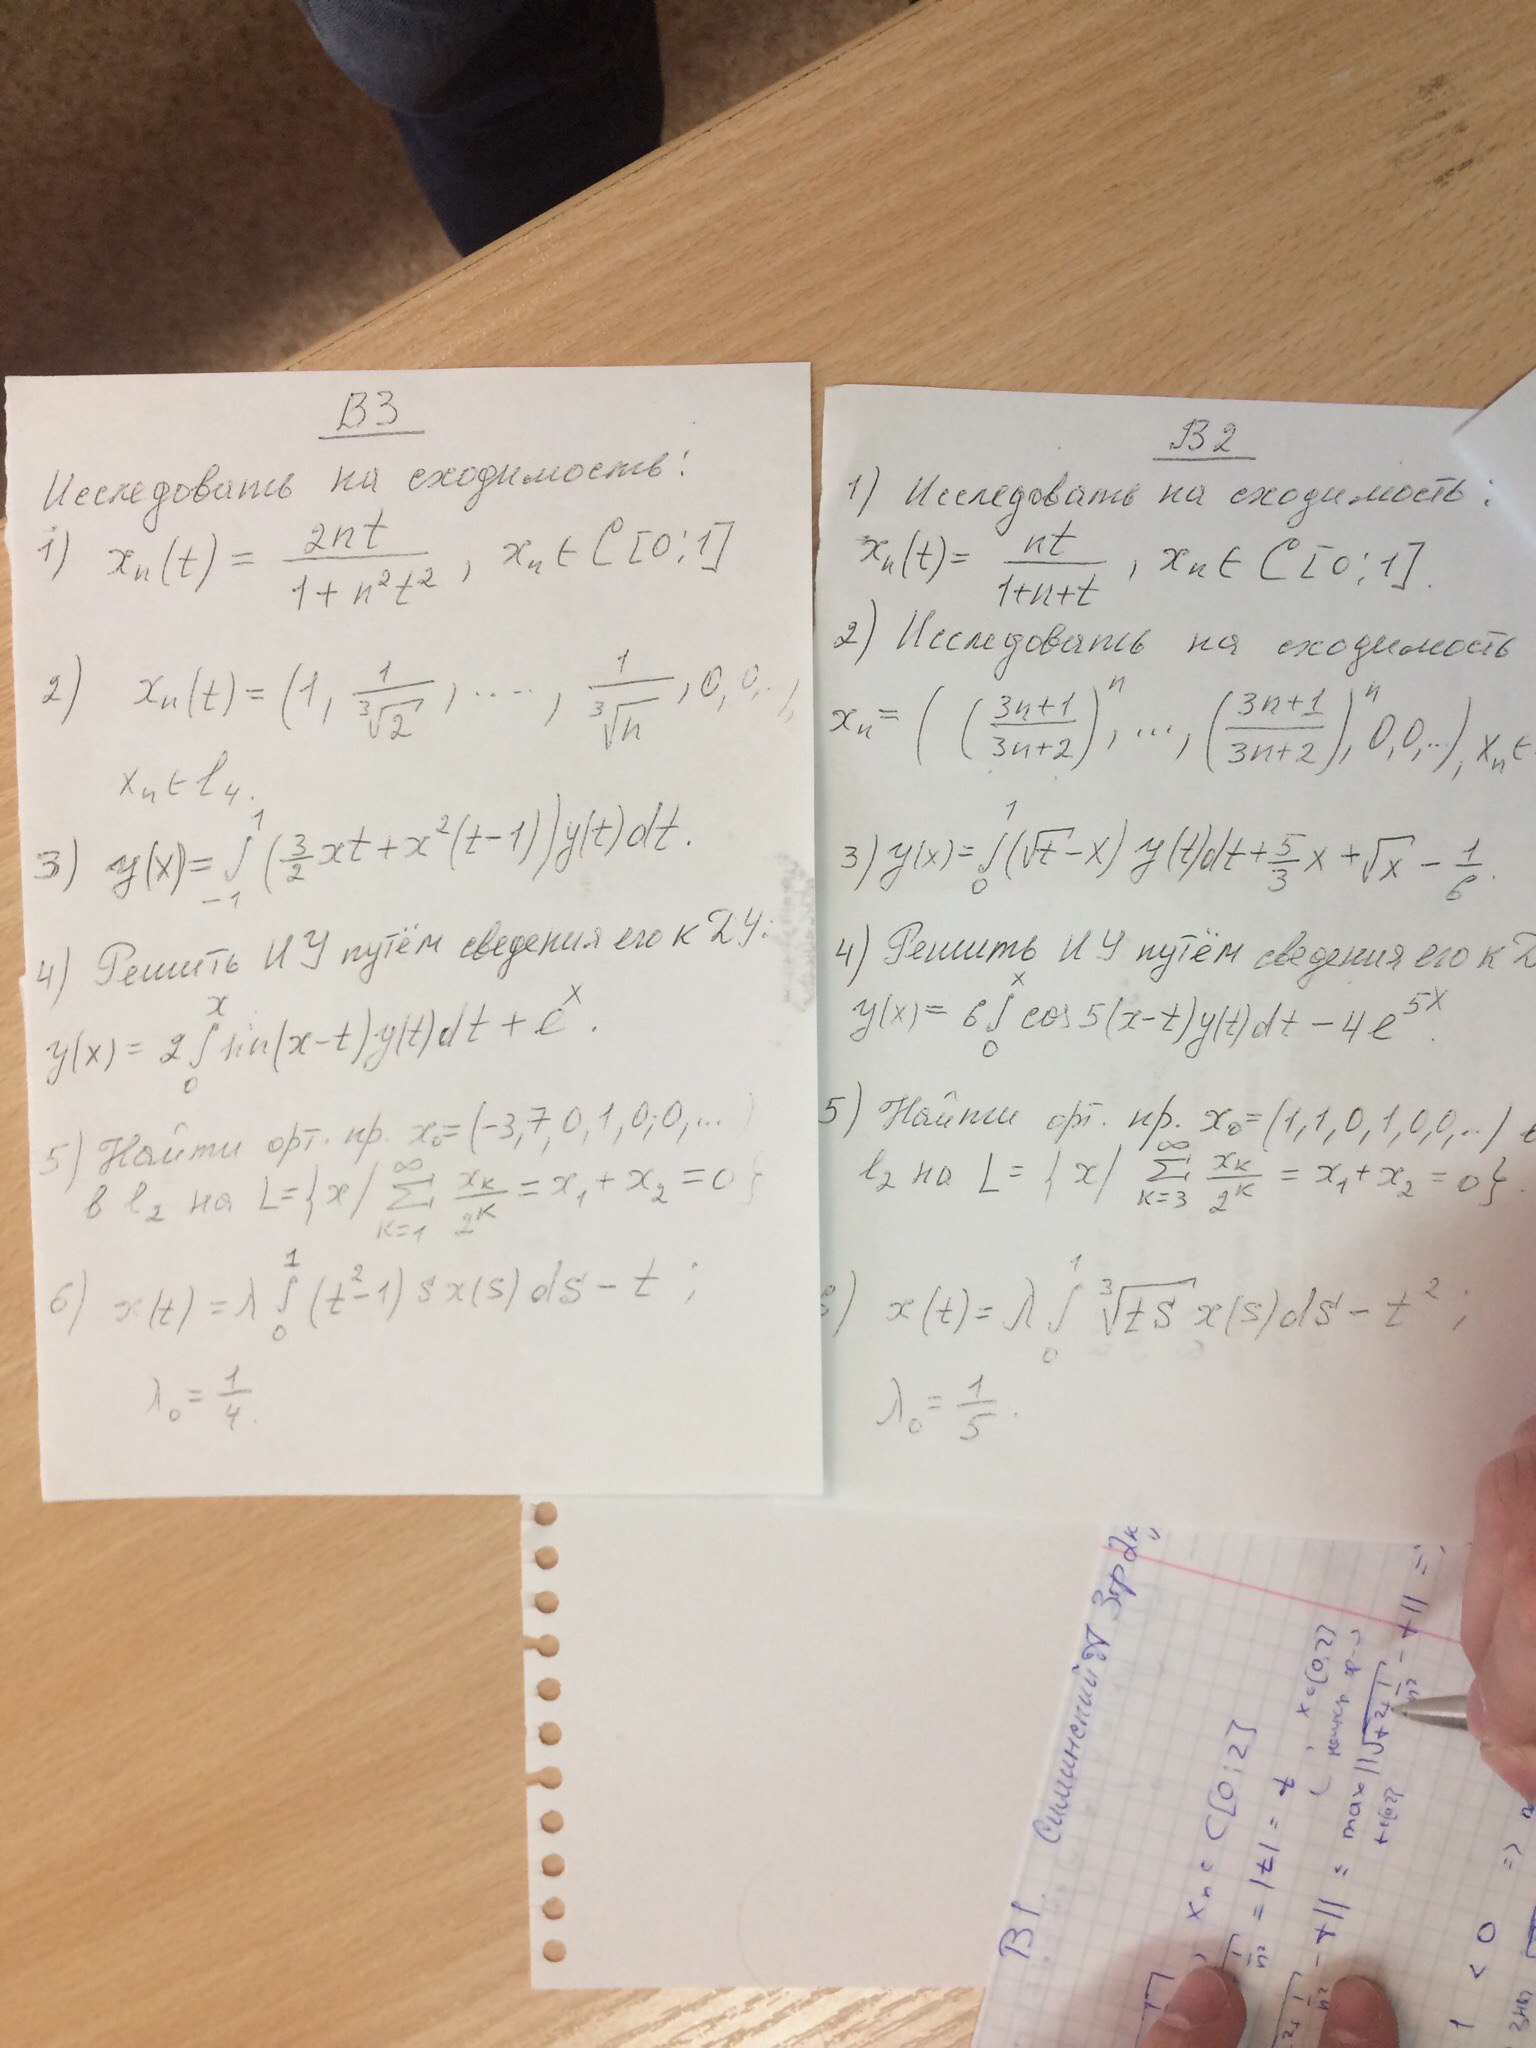 В3
Исследовать на сходимость:
1) xₙ(t) = 2nt / (1 + n²t²), xₙ ∈ C[0;1]
2) xₙ(t) = (1, 1/∛2, ...., 1/∛n, 0, 0,..),
xₙ ∈ l₄.
3) y(x) = ∫₋₁¹ (3/2 xt + x²(t-1)) y(t)dt.
4) Решить ИУ путём сведения его к ДУ:
y(x) = 2 ∫₀ˣ sin(x-t) y(t)dt + eˣ.
5) Найти орт. пр. x₀ = (-3, 7, 0, 1, 0, 0,...)
в l₂ на L = {x / ∑ₖ₌₁^∞ xₖ/2ᵏ = x₁ + x₂ = 0}
6) x(t) = λ ∫₀¹ (t²-1) s x(s) ds - t ;
λ₀ = 1/4.
В2
1) Исследовать на сходимость:
xₙ(t) = nt / (1+n+t), xₙ ∈ C[0;1].
2) Исследовать на сходимость
xₙ = ( ((3n+1)/(3n+2))ⁿ, ..., ((3n+1)/(3n+2))ⁿ, 0, 0,..), xₙ ∈
3) y(x) = ∫₀¹ (√t - x) y(t)dt + 5/3 x + √x - 1/6.
4) Решить ИУ путём сведения его к Д
y(x) = 6 ∫₀ˣ cos 5(x-t) y(t) dt - 4e⁵ˣ.
5) Найти орт. пр. x₀ = (1, 1, 0, 1, 0, 0,..) в
l₂ на L = {x / ∑ₖ₌₃^∞ xₖ/2ᵏ = x₁ + x₂ = 0}.
) x(t) = λ ∫₀¹ ∛(ts) x(s) ds - t² ;
λ₀ = 1/5.
В1.
xₙ ∈ C[0;2]
= |t| = t